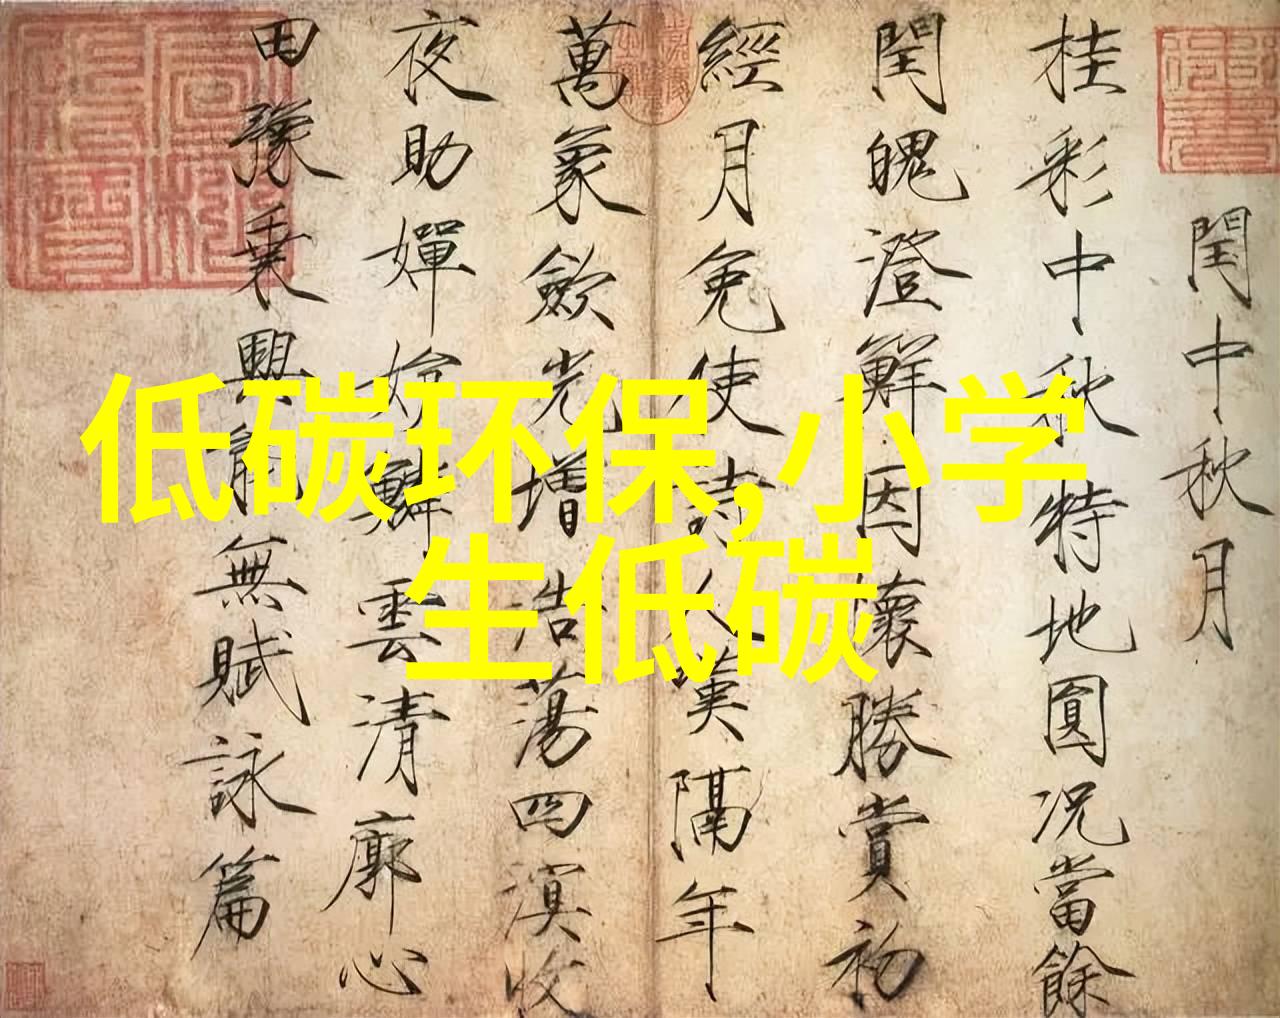 閏中秋月
桂彩中秋特地圓況當餘
閏魄澄鮮因懷勝賞初
經月免使詩人嘆隔年
萬象歛光增浩蕩四溟收
夜助嬋娟鱗雲清廓心
田豫乗興能無賦詠篇
低碳环保,小学
生低碳